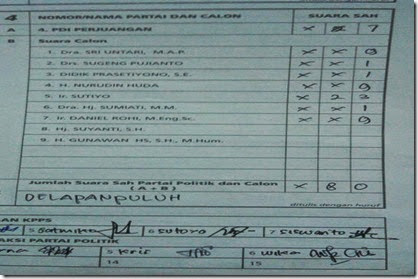 4 NOMOR/NAMA PARTAI DAN CALON SUARA SAH
A 4. PDI PERJUANGAN X 7
B Suara Calon
1. Dra. SRI UNTARI, M.A.P. X X 0
2. Drs. SUGENG PUJIANTO X X 1
3. DIDIK PRASETIYONO, S.E. X X 1
4. H. NURUDIN HUDA X X 0
5. Ir. SUTIYO X 2 3
6. Dra. Hj. SUMIATI, M.M. X X 1
7. Ir. DANIEL ROHI, M.Eng.Sc. X X 0
8. Hj. SUYANTI, S.H.
9. H. GUNAWAN HS, S.H., M.Hum.
Jumlah Suara Sah Partai Politik dan Calon X 8 0
( A + B )
DELAPANPULUH ditulis dengan huruf
AN KPPS
5 6 Sutoro 7 Siswanto
AKSI PARTAI POLITIK
5 Kris 6
14 15